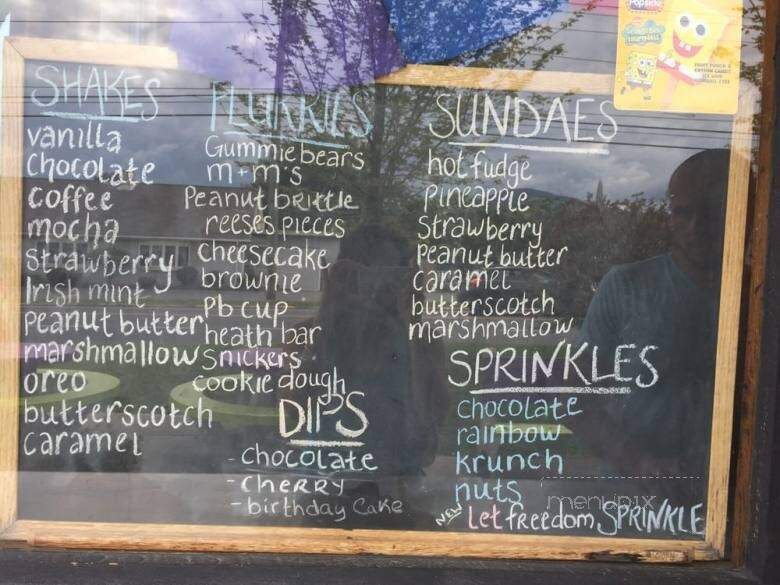 SHAKES
vanilla
Chocolate
coffee
mocha
strawberry
Irish mint
Peanut butter
marshmallow
oreo
butterscotch
caramel
FLURRIES
Gummie bears
m+m's
Peanut brittle
reeses pieces
cheesecake
brownie
Pb cup
heath bar
Snickers
cookie dough
DIPS
- chocolate
- cherry
- birthday cake
SUNDAES
hot fudge
pineapple
strawberry
Peanut butter
caramel
butterscotch
marshmallow
SPRINKLES
chocolate
rainbow
krunch
nuts
NEW Let freedom SPRINKLE
Popsicle
menupix